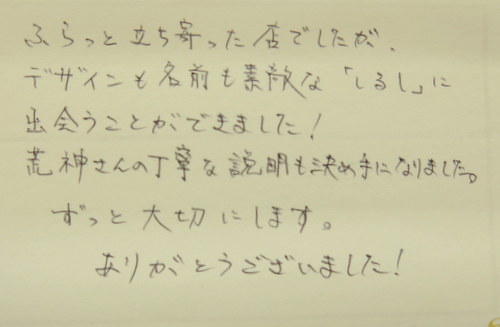 ふらっと立ち寄った店でしたが、
デザインも名前も素敵な「しるし」に
出会うことができました!
荒神さんの丁寧な説明も決め手になりました。
ずっと大切にします。
ありがとうございました!